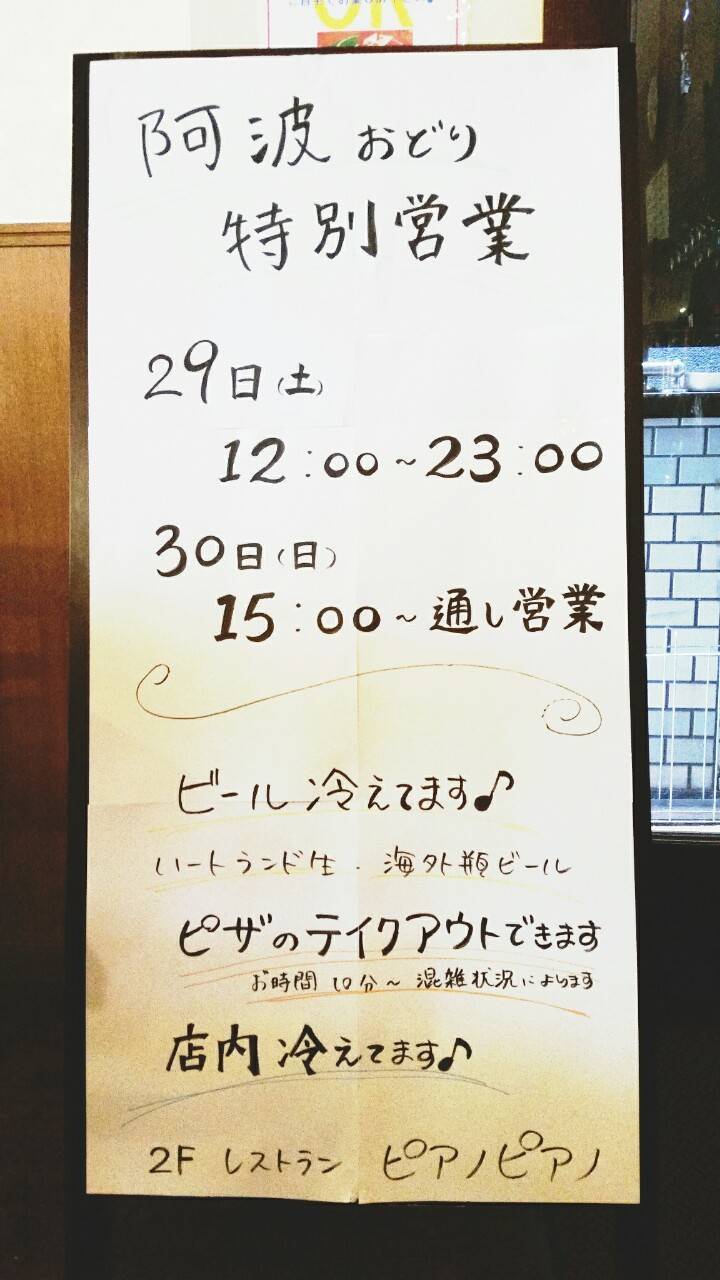 阿波おどり
特別営業
29日(土)
12:00~23:00
30日(日)
15:00~通し営業
ビール冷えてます♪
ハートランド生・海外瓶ビール
ピザのテイクアウトできます
お時間 10分~ 混雑状況によります
店内冷えてます♪
2F レストラン ピアノピアノ